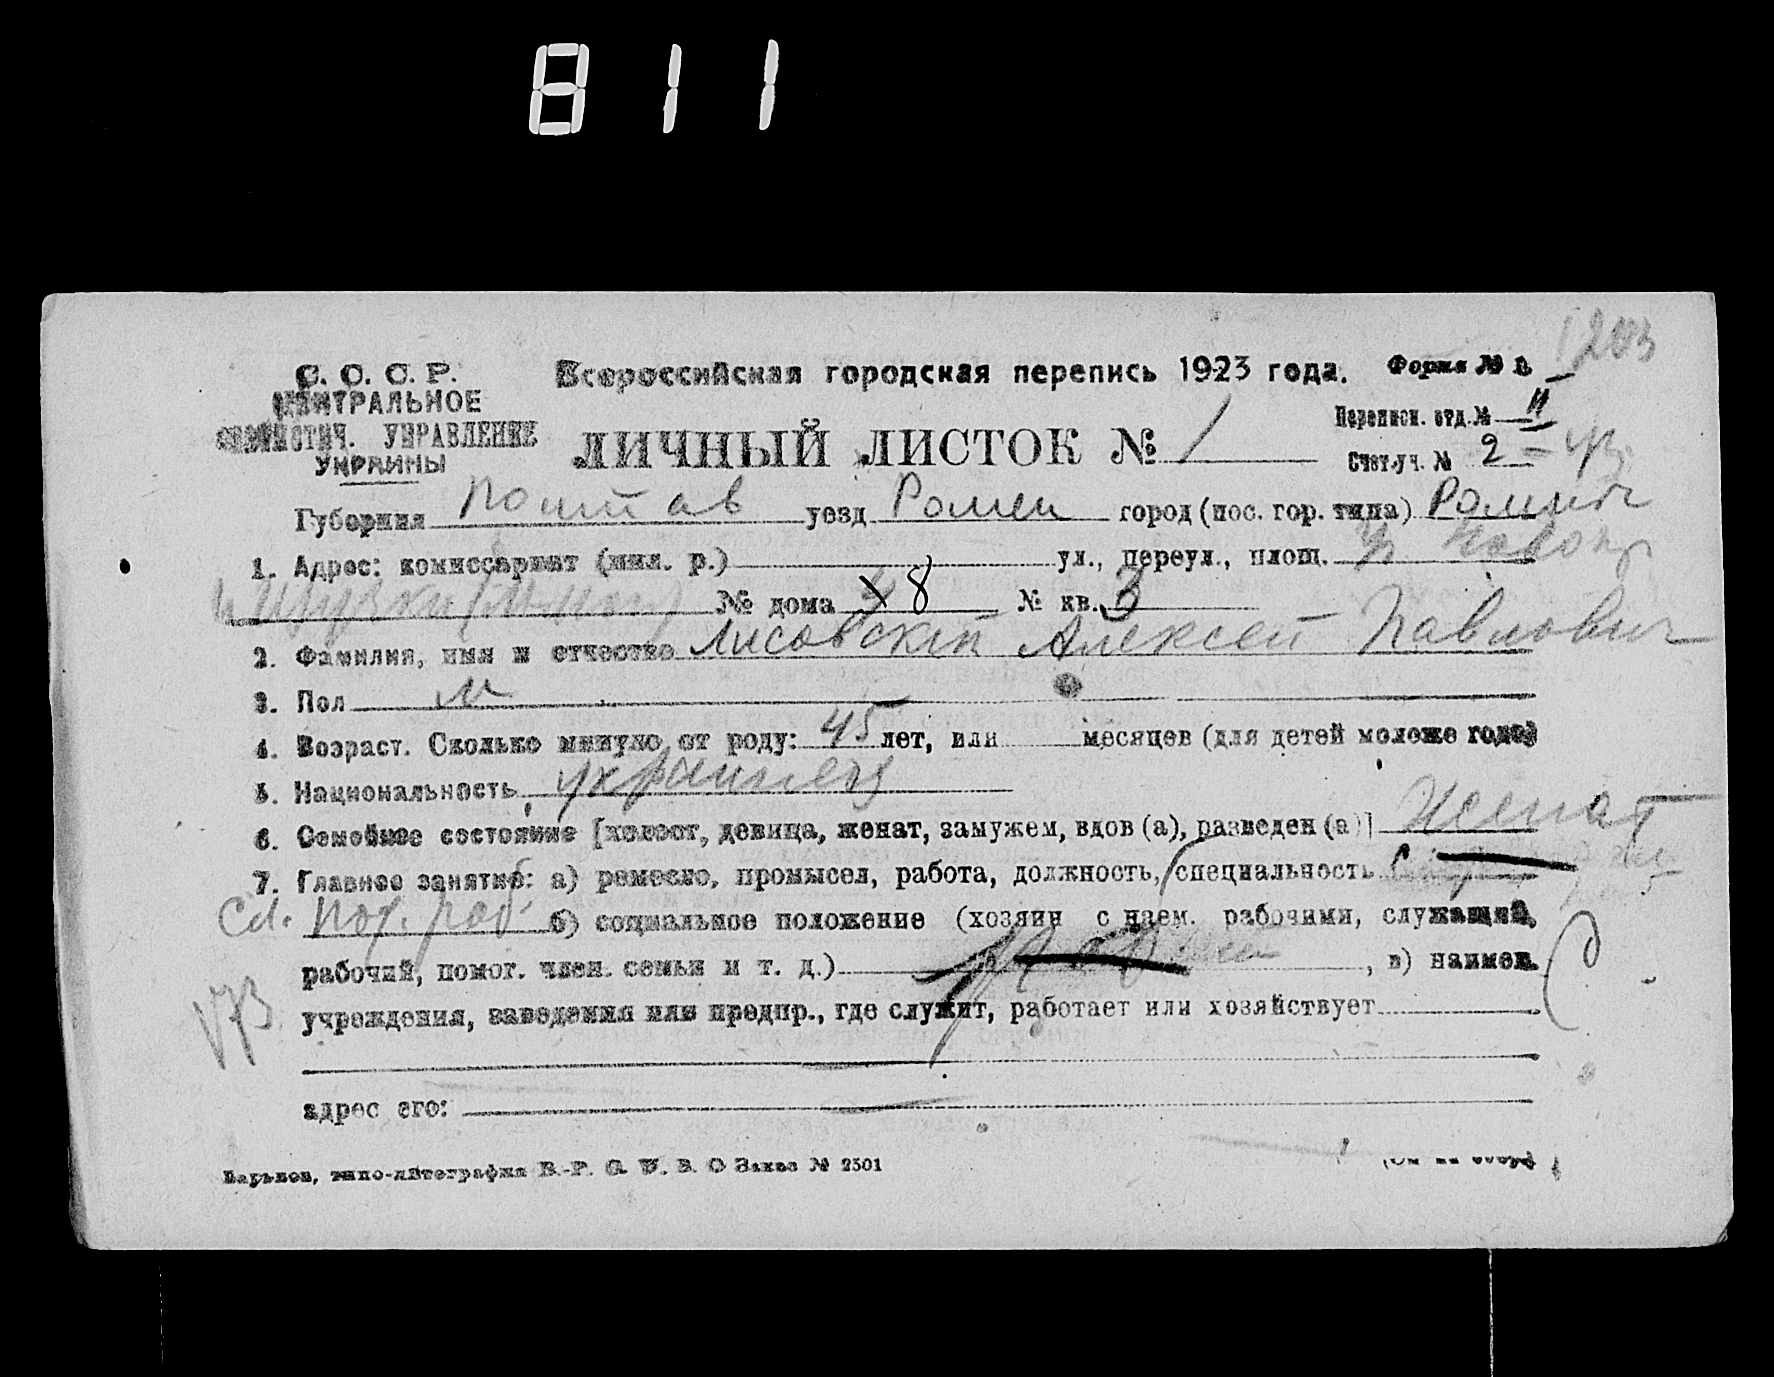 811
1203
С. С. С. Р.
ЦЕНТРАЛЬНОЕ
СТАТИСТИЧ. УПРАВЛЕНИЕ
УКРАИНЫ
Всероссийская городская перепись 1923 года.
Форма № 1
ЛИЧНЫЙ ЛИСТОК № 1
Переписн. отд. № II
Счет. уч. № 2
Губерния Полтав уезд Ромен город (пос. гор. типа) Ромны
1. Адрес: комиссариат (мил. р.) ул., переул., площ.
№ дома 8 № кв. 3
2. Фамилия, имя и отчество Лисовскій Алексей Павлович
3. Пол м
4. Возраст. Сколько минуло от роду: 45 лет, или месяцев (для детей моложе года)
5. Национальность украинец
6. Семейное состояние [холост, девица, женат, замужем, вдов (а), разведен (а)] Женат
7. Главное занятие: а) ремесло, промысел, работа, должность, специальность
б) социальное положение (хозяин с наем. рабочими, служащий,
рабочий, помог. член. семьи и т. д.) , в) наимен.
учреждения, заведения или предпр., где служит, работает или хозяйствует
адрес его:
Харьков, типо-литография Заказ № 2501